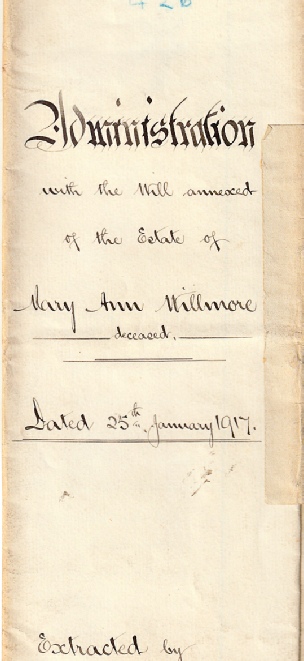 Administration
with the Will annexed
of the Estate of
Mary Ann Willmore
deceased.
Dated 25th January 1917.
Extracted by